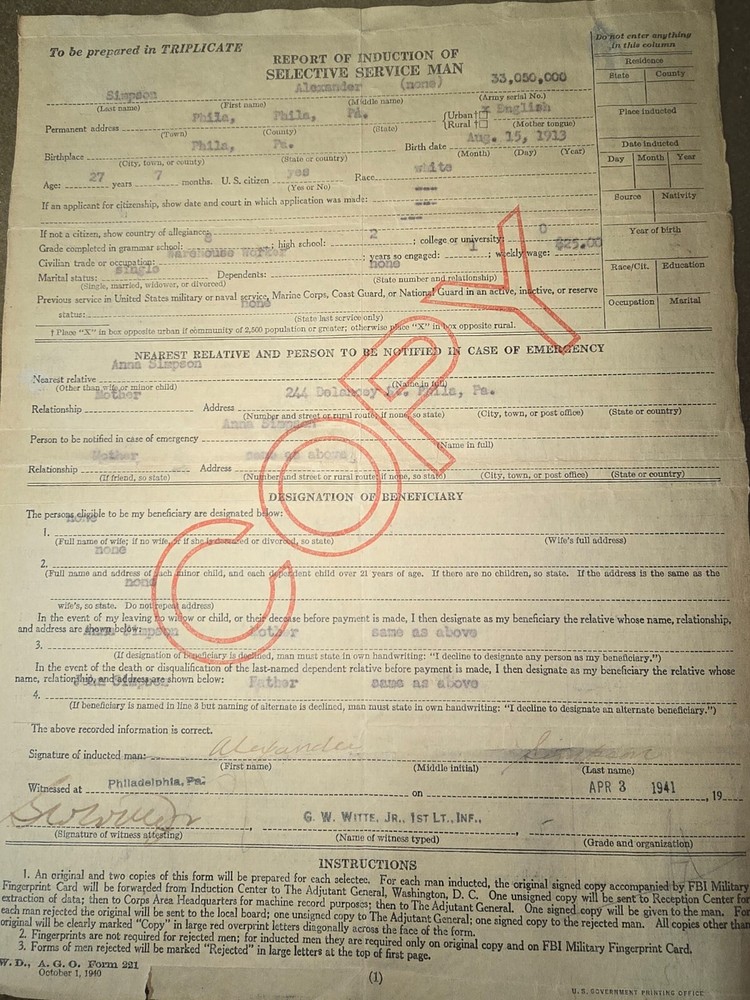 To be prepared in TRIPLICATE
Do not enter anything in this column
REPORT OF INDUCTION OF
SELECTIVE SERVICE MAN
Residence
State County
Simpson Alexander (none) 33,050,000
(Last name) (First name) (Middle name) (Army serial No.)
Phila, Phila, Pa. x English
Permanent address (Town) (County) (State) {Urban †□ {Rural †□ (Mother tongue)
Place inducted
Phila, Pa. Aug. 15, 1913
Birthplace (City, town, or county) (State or country) Birth date (Month) (Day) (Year)
Date inducted
Day Month Year
27 7 yes white
Age: years months. U. S. citizen (Yes or No) Race
---
If an applicant for citizenship, show date and court in which application was made:
Source Nativity
---
If not a citizen, show country of allegiance:
Year of birth
8 2 0
Grade completed in grammar school: ; high school: ; college or university:
warehouse worker 1 $25.00
Civilian trade or occupation: ; years so engaged: ; weekly wage:
Race/Cit. Education
single none
Marital status: (Single, married, widower, or divorced) Dependents: (State number and relationship)
Previous service in United States military or naval service, Marine Corps, Coast Guard, or National Guard in an active, inactive, or reserve
Occupation Marital
none
status: (State last service only)
† Place "X" in box opposite urban if community of 2,500 population or greater; otherwise place "X" in box opposite rural.
COPY
NEAREST RELATIVE AND PERSON TO BE NOTIFIED IN CASE OF EMERGENCY
Anna Simpson
Nearest relative (Other than wife or minor child) (Name in full)
Mother 244 Delancey St. Phila, Pa.
Relationship Address (Number and street or rural route; if none, so state) (City, town, or post office) (State or country)
Anna Simpson
Person to be notified in case of emergency (Name in full)
Mother same as above
Relationship (If friend, so state) Address (Number and street or rural route; if none, so state) (City, town, or post office) (State or country)
DESIGNATION OF BENEFICIARY
The persons eligible to be my beneficiary are designated below:
none
1.
(Full name of wife; if no wife, or if she is deceased or divorced, so state) (Wife's full address)
none
2.
(Full name and address of each minor child, and each dependent child over 21 years of age. If there are no children, so state. If the address is the same as the
none
wife's, so state. Do not repeat address)
In the event of my leaving no widow or child, or their decease before payment is made, I then designate as my beneficiary the relative whose name, relationship,
and address are shown below:
Anna Simpson Mother same as above
3.
(If designation of beneficiary is declined, man must state in own handwriting: "I decline to designate any person as my beneficiary.")
In the event of the death or disqualification of the last-named dependent relative before payment is made, I then designate as my beneficiary the relative whose
name, relationship, and address are shown below:
John Simpson Father same as above
4.
(If beneficiary is named in line 3 but naming of alternate is declined, man must state in own handwriting: "I decline to designate an alternate beneficiary.")
The above recorded information is correct.
Alexander Simpson
Signature of inducted man: (First name) (Middle initial) (Last name)
Witnessed at Philadelphia, Pa. on APR 3 1941 , 19
G. W. WITTE, JR., 1ST LT., INF.,
(Signature of witness attesting) (Name of witness typed) (Grade and organization)
INSTRUCTIONS
1. An original and two copies of this form will be prepared for each selectee. For each man inducted, the original signed copy accompanied by FBI Military
Fingerprint Card will be forwarded from Induction Center to The Adjutant General, Washington, D. C. One unsigned copy will be sent to Reception Center for
extraction of data; then to Corps Area Headquarters for machine record purposes; then to The Adjutant General. One signed copy will be given to the man. For
each man rejected the original will be sent to the local board; one unsigned copy to The Adjutant General; one signed copy to the rejected man. All copies other than
original will be clearly marked "Copy" in large red overprint letters diagonally across the face of the form.
2. Fingerprints are not required for rejected men; for inducted men they are required only on original copy and on FBI Military Fingerprint Card.
3. Forms of men rejected will be marked "Rejected" in large letters at the top of first page.
W. D., A. G. O. Form 221
October 1, 1940
(1)
U. S. GOVERNMENT PRINTING OFFICE